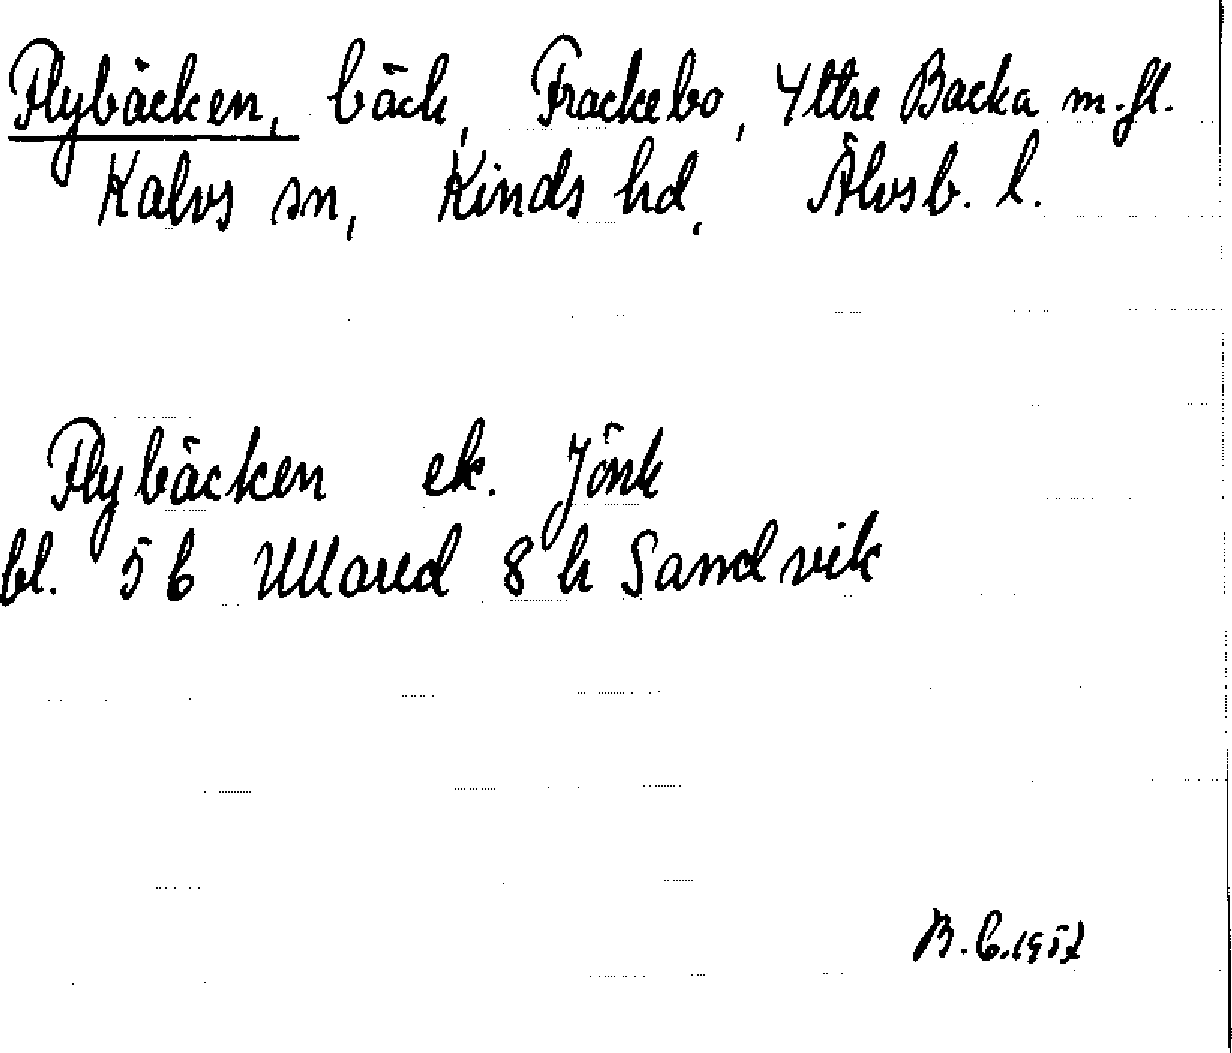 Flybäcken, bäck, Frackebo, Yttre Backa m.fl.
Kalvs sn, Kinds hd, Älvsb. l.
Flybäcken ek. Jönk
bl. 5 b Ullared 8 h Sandvik
B.C. 1957